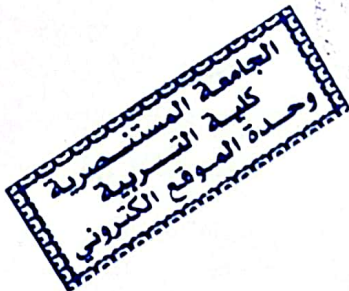 الجامعة المستنصرية
كلية التربية
وحدة الموقع الكتروني